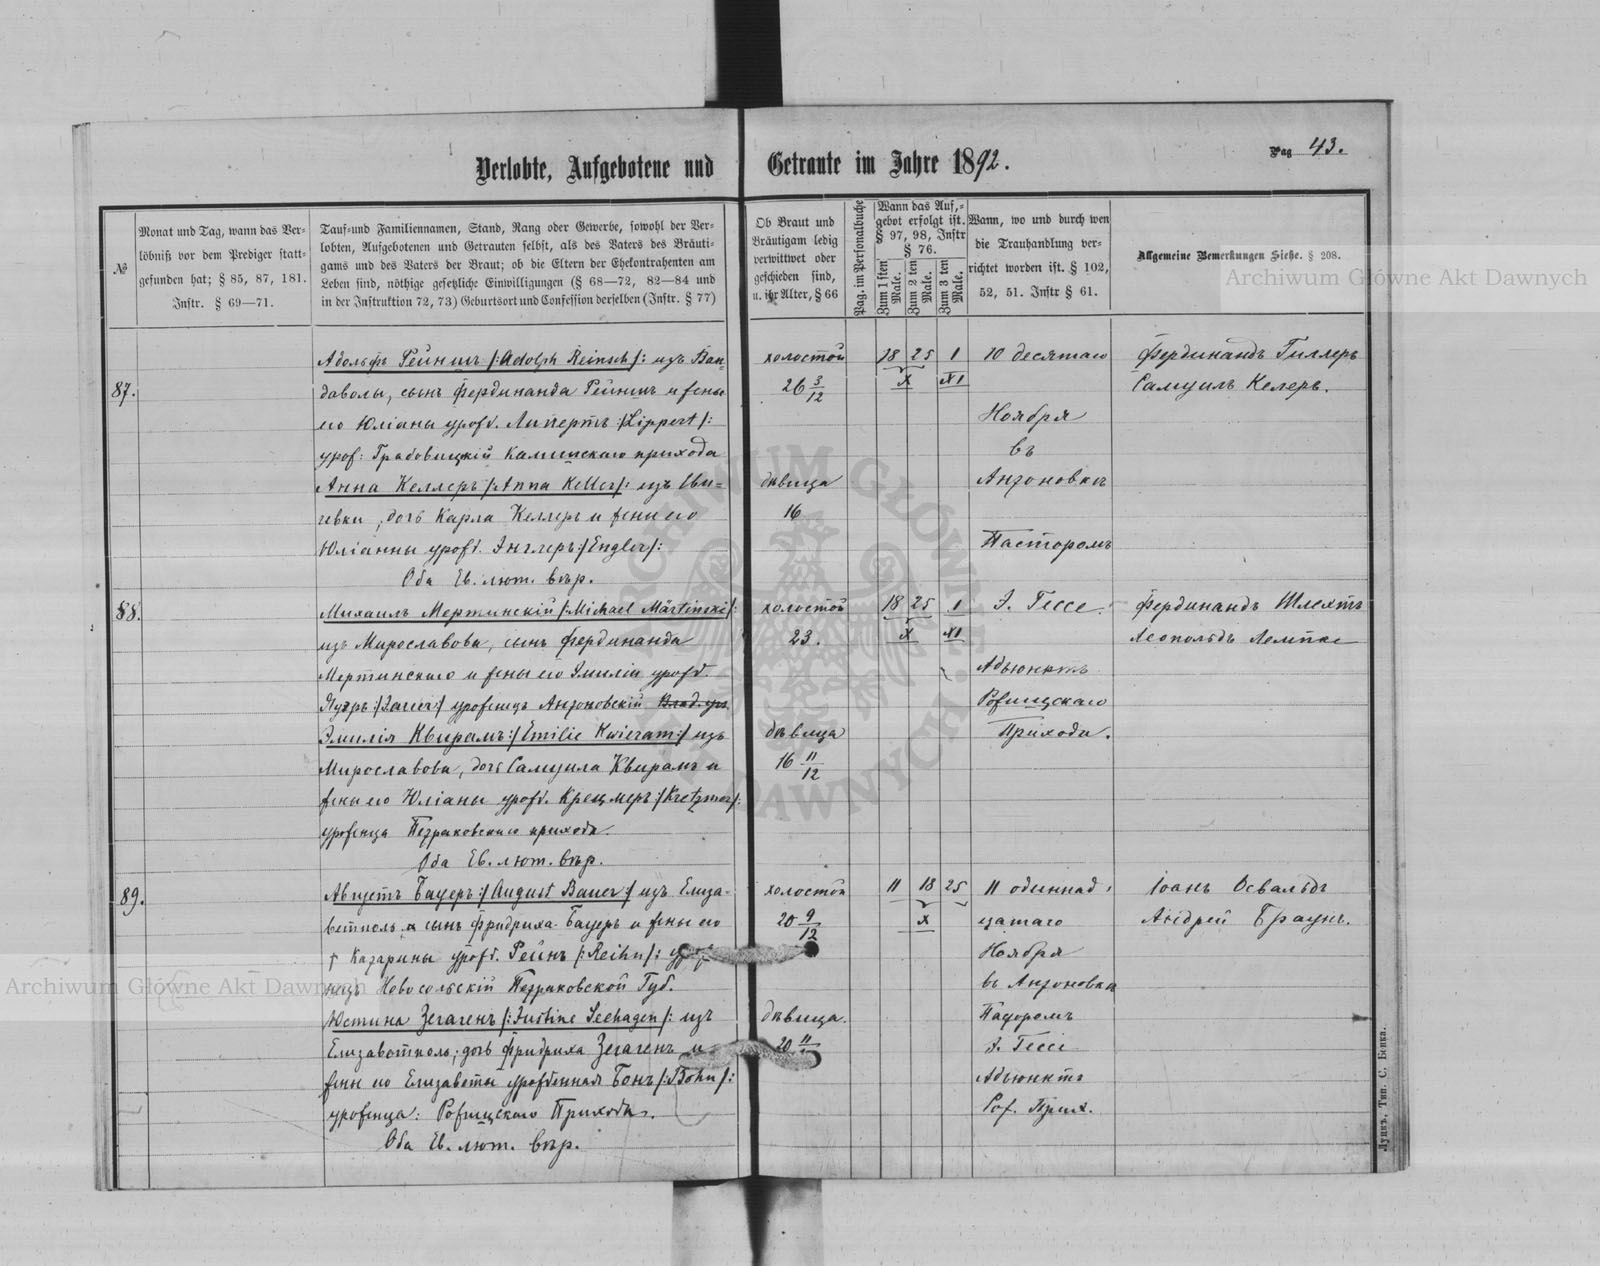 Verlobte, Aufgebotene und Getraute im Jahre 1892.
Pag 43.
№
Monat und Tag, wann das Ver-
löbniß vor dem Prediger statt-
gefunden hat; § 85, 87, 181.
Instr. § 69—71.
Tauf-und Familiennamen, Stand, Rang oder Gewerbe, sowohl der Ver-
lobten, Aufgebotenen und Getrauten selbst, als des Vaters des Bräuti-
gams und des Vaters der Braut; ob die Eltern der Ehekontrahenten am
Leben sind, nöthige gesetzliche Einwilligungen (§ 68—72, 82—84 und
in der Instruktion 72, 73) Geburtsort und Confession derselben (Instr. § 77)
Ob Braut und
Bräutigam ledig
verwittwet oder
geschieden sind,
u. ihr Alter, § 66
Pag. im Personalbuche
Wann das Auf,-
gebot erfolgt ist.
§ 97, 98, Instr
§ 76.
Zum 1 sten Male.
Zum 2 ten Male.
Zum 3 ten Male.
Wann, wo und durch wen
die Trauhandlung ver-
richtet worden ist. § 102,
52, 51. Instr § 61.
Allgemeine Bemerkungen Siehe. § 208.
87.
Адольфъ Рейншъ /:Adolph Reinsch/: изъ Ван-
даволы, сынъ Фердинанда Рейншъ и жены
его Юліаны урожд. Липертъ :/Lippert/:
урож: Грабовицкій Каминскаго прихода
Анна Келлеръ /:Anna Keller/: изъ
чевки, дочь Карла Келлеръ и жены его
Юліанны урожд. Энглеръ :/Engler/:
Оба Ев. лют. вѣр.
холостой
26 3/12
дѣвица
16
18 25 1
X XI
10 десятаго
Ноября
въ
Антоновкѣ
Пасторомъ
Э. Гессе.
Адъюнктъ
Рожищскаго
Прихода.
Фердинандъ Гиллеръ
Самуилъ Келеръ.
88.
Михаилъ Мертинскій /:Michael Märtinski/:
изъ Мирославова, сынъ Фердинанда
Мертинскаго и жены его Эмиліи урожд.
:/Zauer/: уроженецъ Антоновскій
Эмилія Квирамъ :/Emilie Kwieram:/ изъ
Мирославова, дочь Самуила Квирамъ и
жены его Юліаны урожд. Крецмеръ :/Kretzmer/:
уроженца Петраковскаго прихода.
Оба Ев. лют. вѣр.
холостой
23.
дѣвица
16 11/12
18 25 1
X XI
Фердинандъ Шлехтъ
Леопольдъ Лемпке
89.
Августъ Бауеръ :/August Bauer:/ изъ Елиза-
ветполь сынъ Фридриха Бауеръ и жены его
† Катарины урожд. Рейнъ /:Reihn/: уроже
нецъ Новосольскій Петраковской Губ.
Юстина Зегагенъ /:Justine Seehagen/: изъ
Елизаветполь; дочь Фридриха Зегагенъ и
жены его Елизаветы урожденная Бонъ /:Bohn/:
уроженца: Рожищскаго Прихода.
Оба Ев. лют. вѣр.
холостой
20 9/12
дѣвица.
20 11
11 18 25
X
11 одиннад,
цатаго
Ноября
въ Антоновкѣ
Пасторомъ
Э. Гессе
Адъюнктъ
Рож. Прих.
Іоанъ Освальдъ
Андрей Браунъ.
Луцкъ. Тип. С. Бенка.
Archiwum Główne Akt Dawnych
Archiwum Główne Akt Dawnych
ARCHIWUM GŁÓWNE AKT DAWNYCH